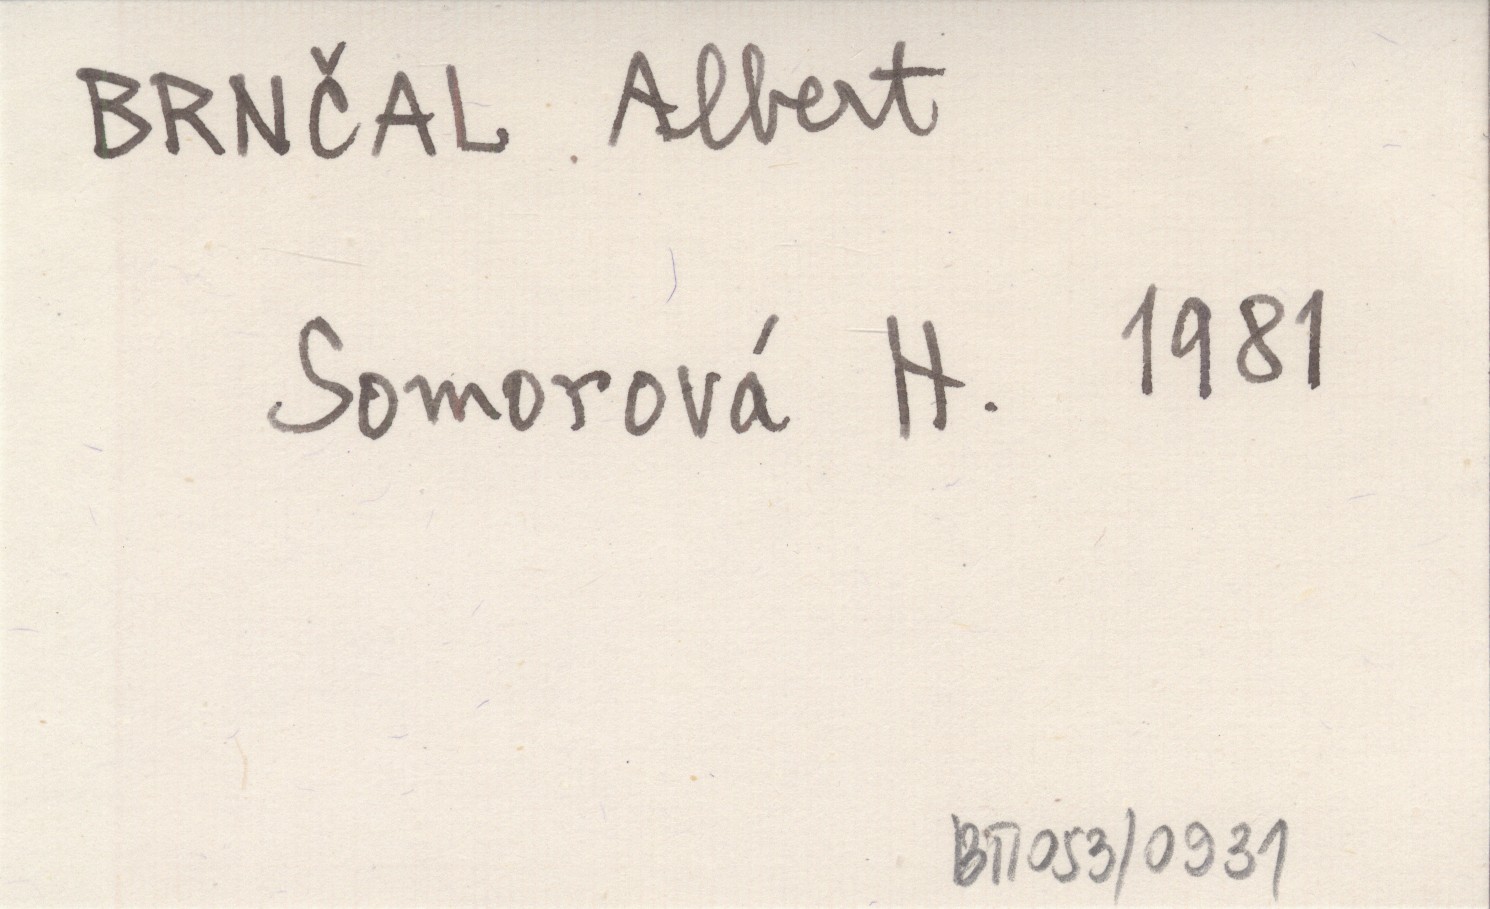 BRNČAL Albert
Somorová H. 1981
BTI053/0931